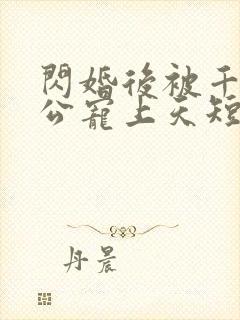 閃婚後被千
公寵上天短
丹晨